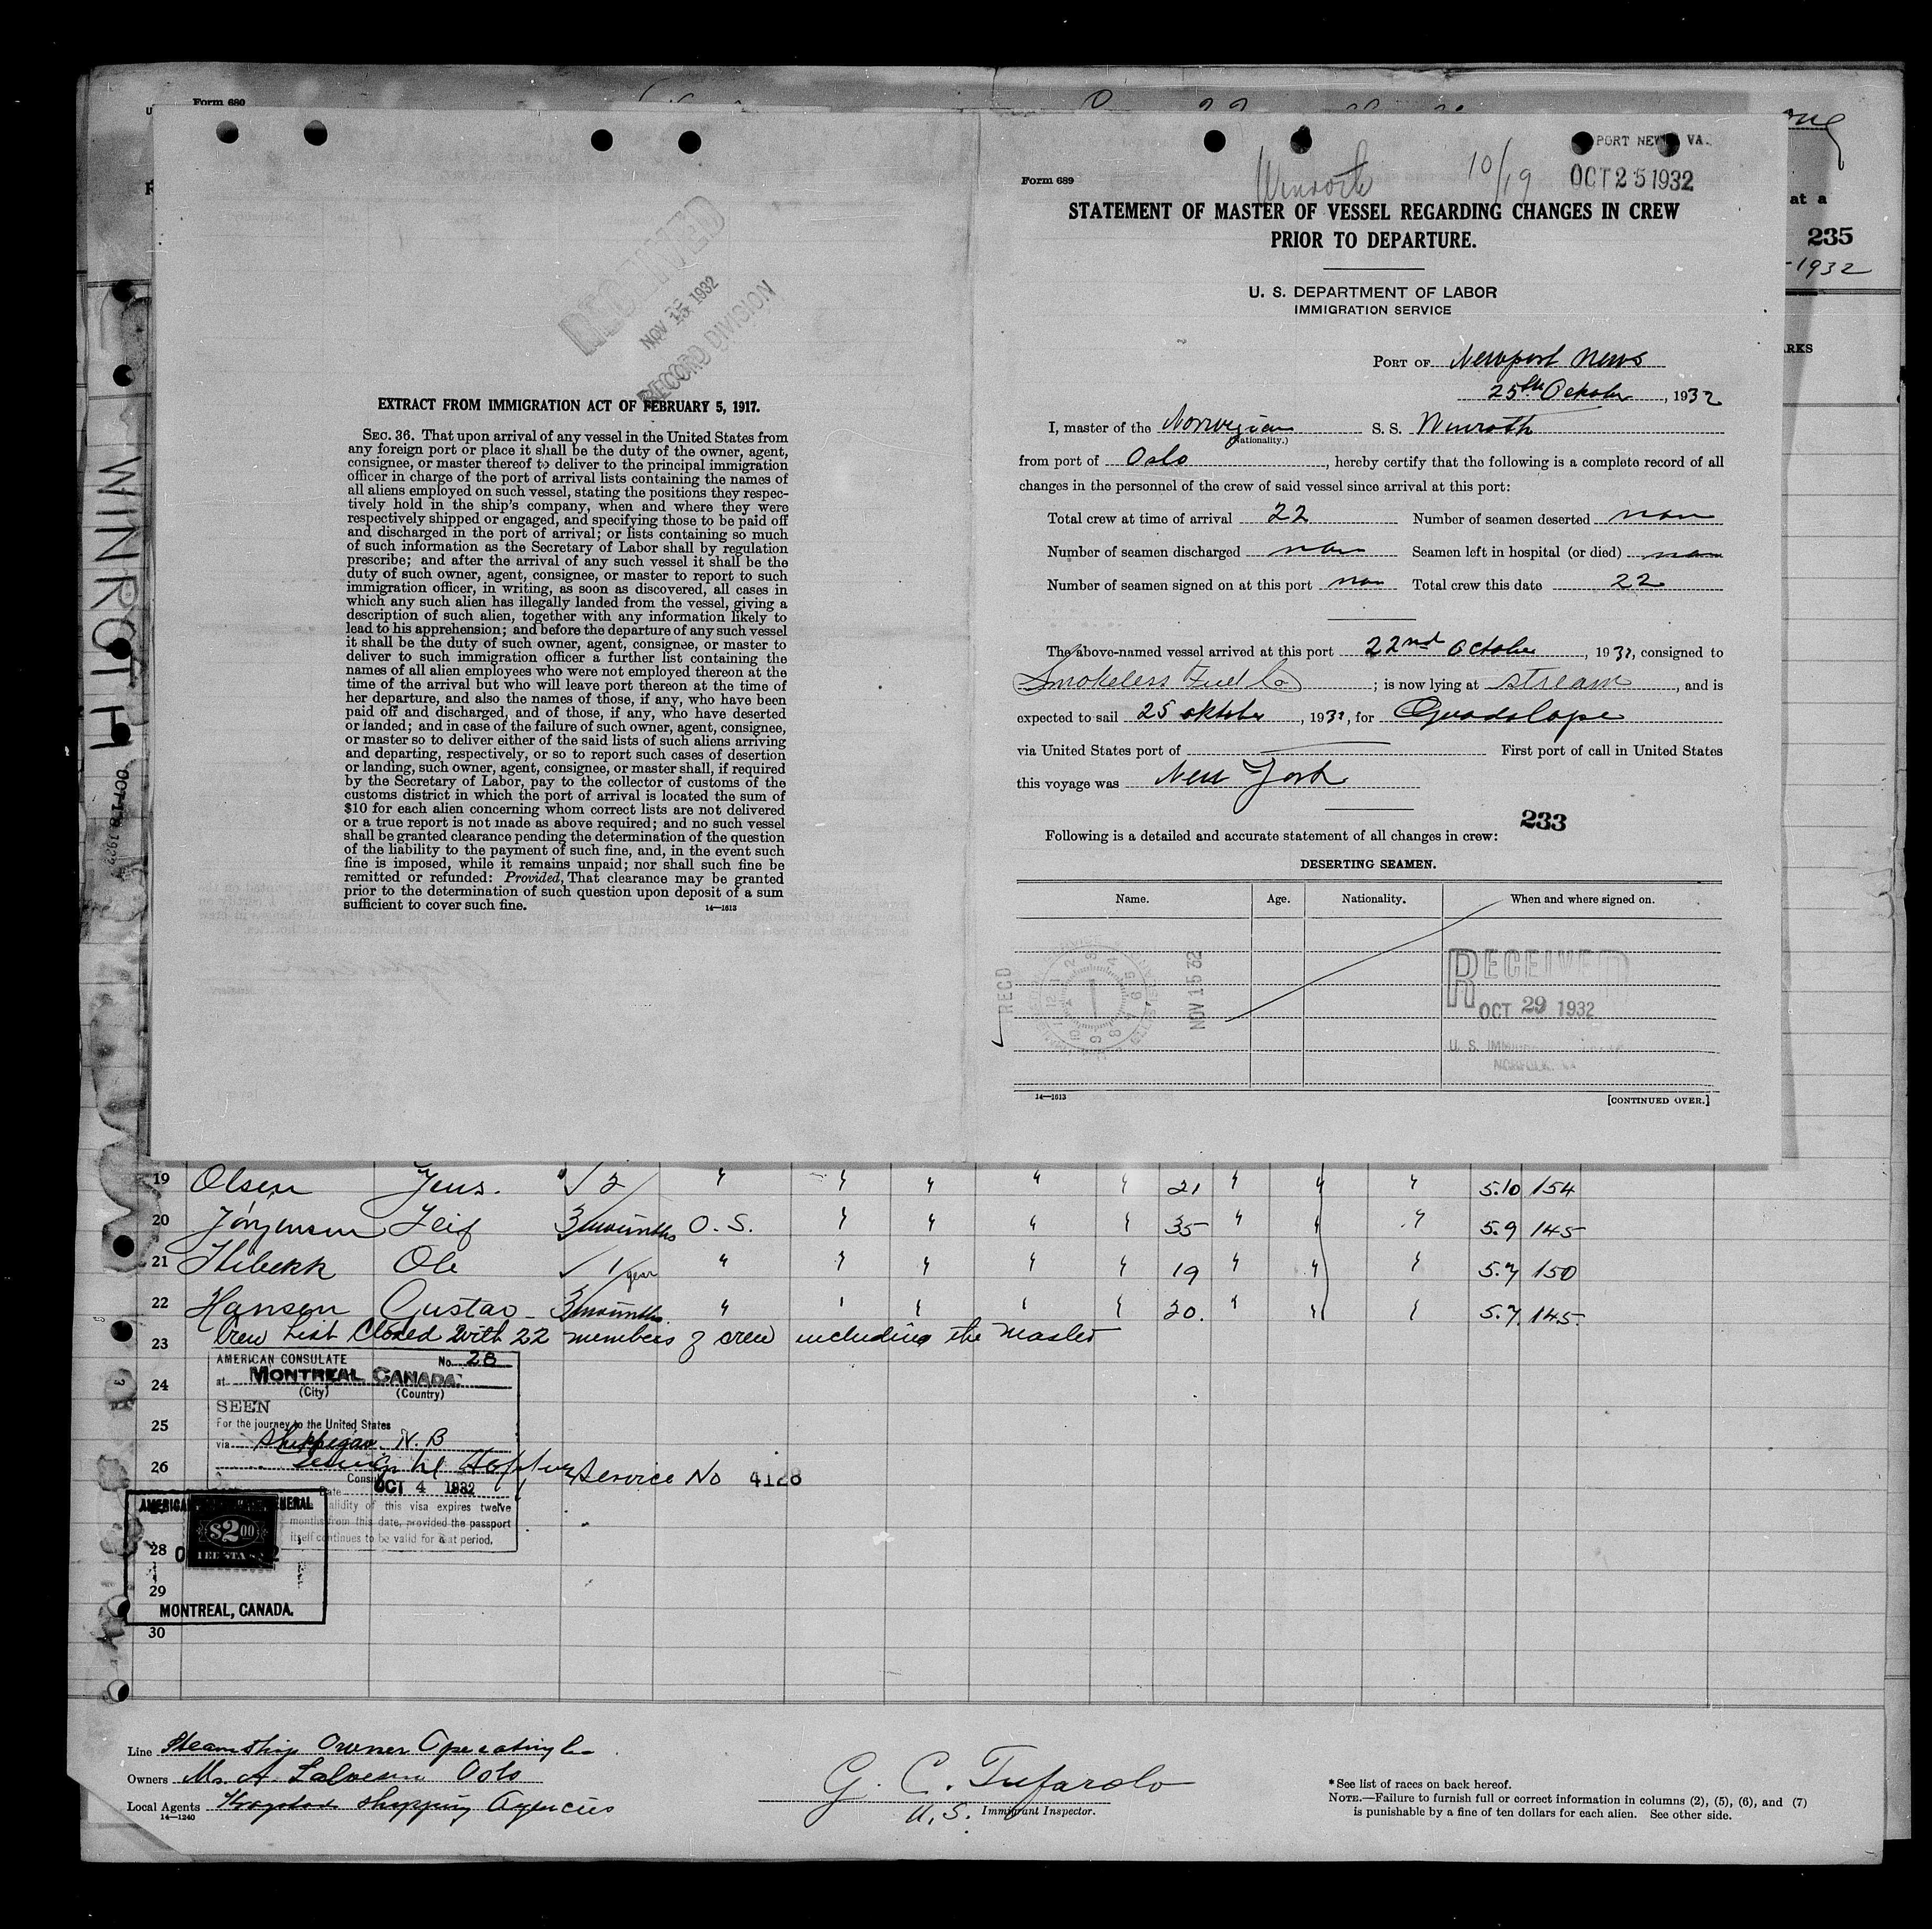 Form 680
Form 689
Winroth
10/19
PORT NEWS VA.
OCT 25 1932
STATEMENT OF MASTER OF VESSEL REGARDING CHANGES IN CREW
PRIOR TO DEPARTURE.
at a
235
1932
RKS
U. S. DEPARTMENT OF LABOR
IMMIGRATION SERVICE
PORT OF Newport News
25th Oktober, 1932
I, master of the Norwegian S. S. Winroth
(Nationality.)
from port of Oslo, hereby certify that the following is a complete record of all
changes in the personnel of the crew of said vessel since arrival at this port:
Total crew at time of arrival 22 Number of seamen deserted non
Number of seamen discharged non Seamen left in hospital (or died) non
Number of seamen signed on at this port non Total crew this date 22
The above-named vessel arrived at this port 22nd October, 1932, consigned to
Smokeless Fuel Co; is now lying at stream, and is
expected to sail 25 oktober, 1932, for Guadalope
via United States port of First port of call in United States
this voyage was New York
233
Following is a detailed and accurate statement of all changes in crew:
DESERTING SEAMEN.
Name. Age. Nationality. When and where signed on.
RECD
NOV 15 32
RECEIVED
OCT 29 1932
NORFOLK, VA
14—1613
[CONTINUED OVER.]
RECEIVED
NOV 15 1932
RECORD DIVISION
EXTRACT FROM IMMIGRATION ACT OF FEBRUARY 5, 1917.
SEC. 36. That upon arrival of any vessel in the United States from
any foreign port or place it shall be the duty of the owner, agent,
consignee, or master thereof to deliver to the principal immigration
officer in charge of the port of arrival lists containing the names of
all aliens employed on such vessel, stating the positions they respec-
tively hold in the ship's company, when and where they were
respectively shipped or engaged, and specifying those to be paid off
and discharged in the port of arrival; or lists containing so much
of such information as the Secretary of Labor shall by regulation
prescribe; and after the arrival of any such vessel it shall be the
duty of such owner, agent, consignee, or master to report to such
immigration officer, in writing, as soon as discovered, all cases in
which any such alien has illegally landed from the vessel, giving a
description of such alien, together with any information likely to
lead to his apprehension; and before the departure of any such vessel
it shall be the duty of such owner, agent, consignee, or master to
deliver to such immigration officer a further list containing the
names of all alien employees who were not employed thereon at the
time of the arrival but who will leave port thereon at the time of
her departure, and also the names of those, if any, who have been
paid off and discharged, and of those, if any, who have deserted
or landed; and in case of the failure of such owner, agent, consignee,
or master so to deliver either of the said lists of such aliens arriving
and departing, respectively, or so to report such cases of desertion
or landing, such owner, agent, consignee, or master shall, if required
by the Secretary of Labor, pay to the collector of customs of the
customs district in which the port of arrival is located the sum of
$10 for each alien concerning whom correct lists are not delivered
or a true report is not made as above required; and no such vessel
shall be granted clearance pending the determination of the question
of the liability to the payment of such fine, and, in the event such
fine is imposed, while it remains unpaid; nor shall such fine be
remitted or refunded: Provided, That clearance may be granted
prior to the determination of such question upon deposit of a sum
sufficient to cover such fine.
14—1613
WINROTH
OCT 18 1932
19 Olsen Jens. " 2 " " " " " 21 " " " 5.10 154
20 Jørgensen Leif 3 mounths O.S. " " " " 35 " " " 5.9 145
21 Ole 1 year " " " " " 19 " " " 5.7 150
22 Hansen Gustav 3 mounths " " " " " 20. " " " 5.7. 145.
23 Crew List Closed With 22 members of crew including the Master
24
25
26
28
29
30
AMERICAN CONSULATE No. 28
at MONTREAL CANADA
(City) (Country)
SEEN
For the journey to the United States
via N.B
Service No 4128
Consul
Date OCT 4 1932
Validity of this visa expires twelve
months from this date, provided the passport
itself continues to be valid for that period.
AMERICAN GENERAL
$2.00
FEE STAMP
MONTREAL, CANADA.
Line Steamship Owner Operating Co
Owners Mr. A. Oslo
Local Agents Shipping Agencies
14—1240
G. C. Tufarolo
U.S. Immigrant Inspector.
* See list of races on back hereof.
NOTE.—Failure to furnish full or correct information in columns (2), (5), (6), and (7)
is punishable by a fine of ten dollars for each alien. See other side.